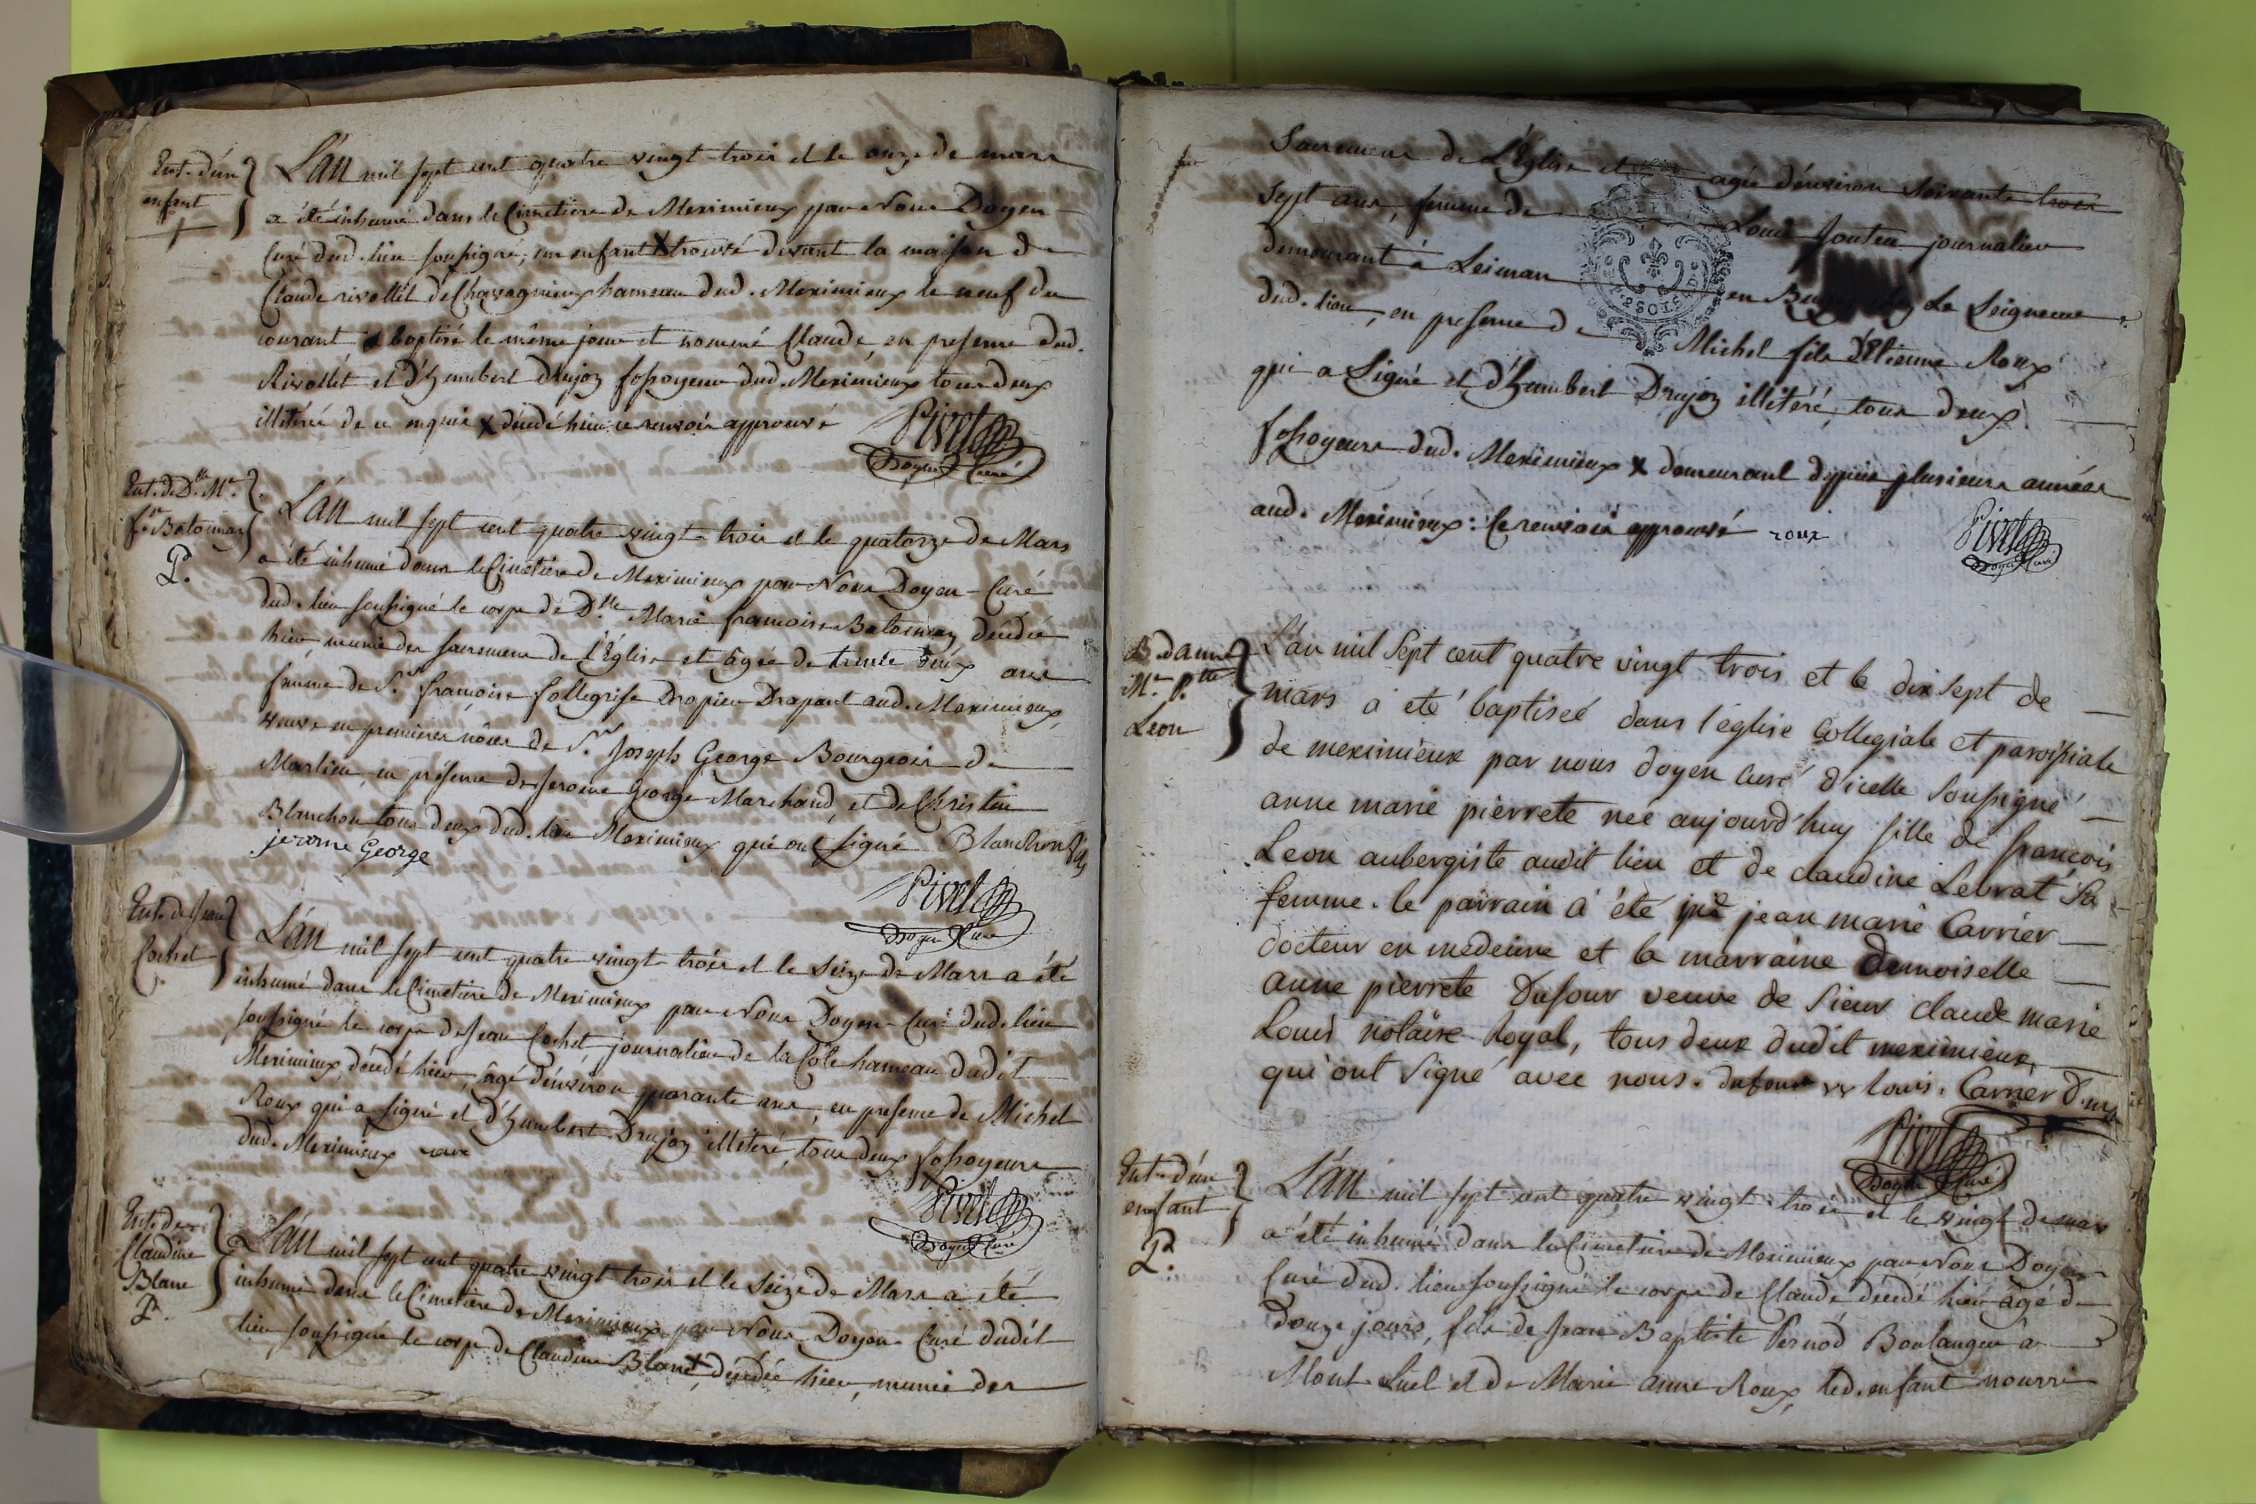 Ent. d'un
enfant
L'an mil sept cent quatre vingt trois et le onze de mars
a été inhumé dans le Cimetière de Meximieux par Nous Doyen
Curé dud. lieu soussigné, un enfant X trouvé devant la maison de
Claude rivollet de Chavagnieux hameau dud. Meximieux le neuf du
courant baptisé le même jour et nommé Claude, en presence dud.
Rivollet et d'humbert Drujon fossoyeur dud. Meximieux tous deux
illitérés de ce enquis X décédé hier ce renvoi approuvé
Pivet
Doyen Curé
Ent. de Dlle Me.
f.se Batonnay
P.
L'an mil sept cent quatre vingt trois et le quatorze de Mars
a été inhumé dans le Cimetière de Meximieux par Nous Doyen Curé
dud. lieu soussigné le corps de Dlle Marie francoise Batonnay décédée
hier, munie des sacremens de l'Eglise et âgée de trente deux ans
femme de Sr. francois follegrisse Dropier Drapant aud. Meximieux,
veuve en premières nôces de Sr. Joseph George Bourgeois de
Marlieu, en présence de Jerome George Marchand et de Christin
Blanchon tous deux dud. lieu Meximieux qui ont signé Blanchon fils
jerome George
Pivet
Doyen Curé
Ent. de Jean
Cochet
L'an mil sept cent quatre vingt trois et le seize de Mars a été
inhumé dans le Cimetière de Meximieux par Nous Doyen Curé dud. lieu
soussigné le corps de Jean Cochet journalier de la Côte hameau dudit
Meximieux, décédé hier, âgé d'environ quarante ans, en presence de Michel
Roux qui a signé et d'humbert Drujon illitéré, tous deux fossoyeurs
dud. Meximieux roux
Pivet
Doyen Curé
Ent. de
Claudine
Blanc
P.
L'an mil sept cent quatre vingt trois et le seize de Mars a été
inhumé dans le Cimetière de Meximieux par Nous Doyen Curé dudit
lieu soussigné le corps de Claudine Blanc X, décédée hier, munie des
Sacremens de L'Eglise et agée d'environ soixante trois
sept ans, femme de Louis Jouteu journalier
demeurant à Leiman en Le Seigneur
dud. lieu, en presence de Michel fils d'Etienne Roux
qui a signé et d'humbert Drujon illitéré, tous deux
fossoyeurs dud. Meximieux X demeurant depuis plusieurs années
aud. Meximieux: Ce renvoi approuvé roux
Pivet
Doyen Curé
B. d'anne
Me. p.tte
Leon
L'an mil sept cent quatre vingt trois et le dix sept de
mars a été baptiseé dans l'église Collegiale et paroissiale
de meximieux par nous doyen curé d'icelle soussigné
anne marie pierrete neé aujourd'huy fille de françois
Leon aubergiste audit lieu et de claudine Lebrat sa
femme. le parrain a été jean marie Carrier
docteur en medecine et la marraine demoiselle
anne pierrete Dufour veuve de sieur claude marie
Louis notaire Royal, tous deux dudit meximieux,
qui ont signé avec nous. dufour vv louis. Carrier D. m.
Pivet
Doyen Curé
Ent. d'un
enfant
P.
L'an mil sept cent quatre vingt trois et le vingt de mars
a été inhumé dans le Cimetière de Meximieux par Nous Doyen
Curé dud. lieu soussigné le corps de Claude décédé hier âgé de
Douze jours, fils de Jean Baptiste Pernod Boulanger à
Mont-Luel et de Marie anne Roux, led. enfant nourri